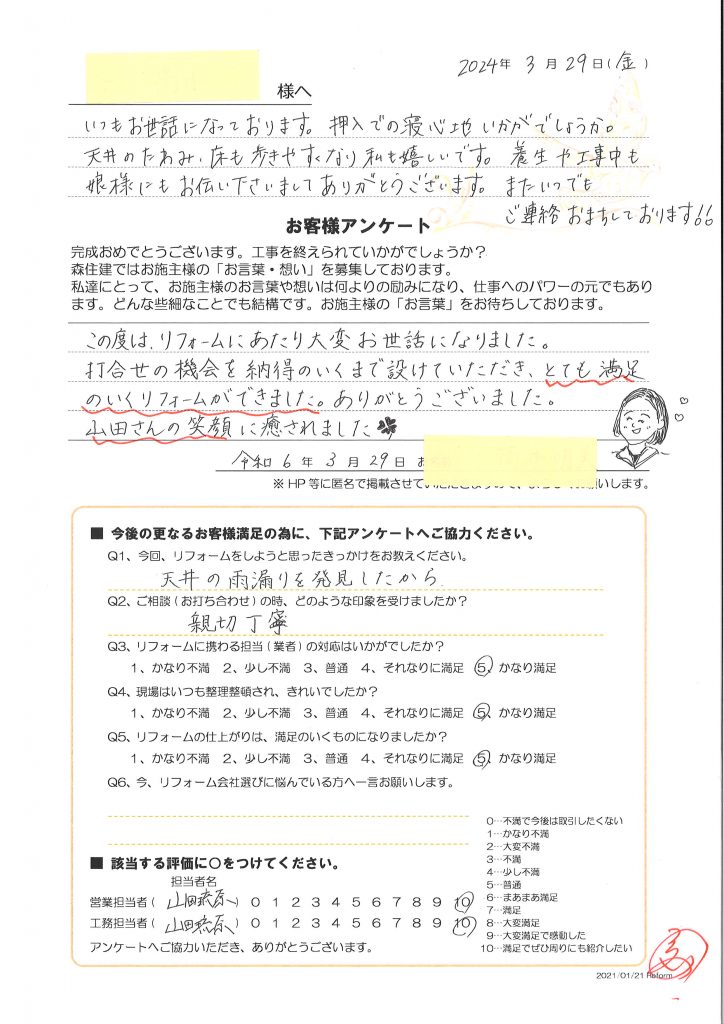 2024年 3月29日(金)
様へ
いつもお世話になっております。押入での寝心地いかがでしょうか。
天井のたわみ、床も歩きやすくなり私も嬉しいです。養生や工事中も
娘様にもお伝い下さいましてありがとうございます。またいつでも
ご連絡おまちしております!!
お客様アンケート
完成おめでとうございます。工事を終えられていかがでしょうか?
森住建ではお施主様の「お言葉・想い」を募集しております。
私達にとって、お施主様のお言葉や想いは何よりの励みになり、仕事へのパワーの元でもあり
ます。どんな些細なことでも結構です。お施主様の「お言葉」をお待ちしております。
この度は、リフォームにあたり大変お世話になりました。
打合せの機会を納得のいくまで設けていただき、とても満足
のいくリフォームができました。ありがとうございました。
山田さんの笑顔に癒されました
令和6年3月29日 お
※HP等に匿名で掲載させていただ
願いします。
■ 今後の更なるお客様満足の為に、下記アンケートへご協力ください。
Q1、今回、リフォームをしようと思ったきっかけをお教えください。
天井の雨漏りを発見したから
Q2、ご相談(お打ち合わせ)の時、どのような印象を受けましたか?
親切丁寧
Q3、リフォームに携わる担当(業者)の対応はいかがでしたか?
1、かなり不満 2、少し不満 3、普通 4、それなりに満足 5、かなり満足
Q4、現場はいつも整理整頓され、きれいでしたか?
1、かなり不満 2、少し不満 3、普通 4、それなりに満足 5、かなり満足
Q5、リフォームの仕上がりは、満足のいくものになりましたか?
1、かなり不満 2、少し不満 3、普通 4、それなりに満足 5、かなり満足
Q6、今、リフォーム会社選びに悩んでいる方へ一言お願いします。
■ 該当する評価に○をつけてください。
担当者名
営業担当者( 山田 ) 0 1 2 3 4 5 6 7 8 9 10
工務担当者( 山田 ) 0 1 2 3 4 5 6 7 8 9 10
アンケートへご協力いただき、ありがとうございます。
0…不満で今後は取引したくない
1…かなり不満
2…大変不満
3…不満
4…少し不満
5…普通
6…まあまあ満足
7…満足
8…大変満足
9…大変満足で感動した
10…満足でぜひ周りにも紹介したい
2021/01/21 Reform